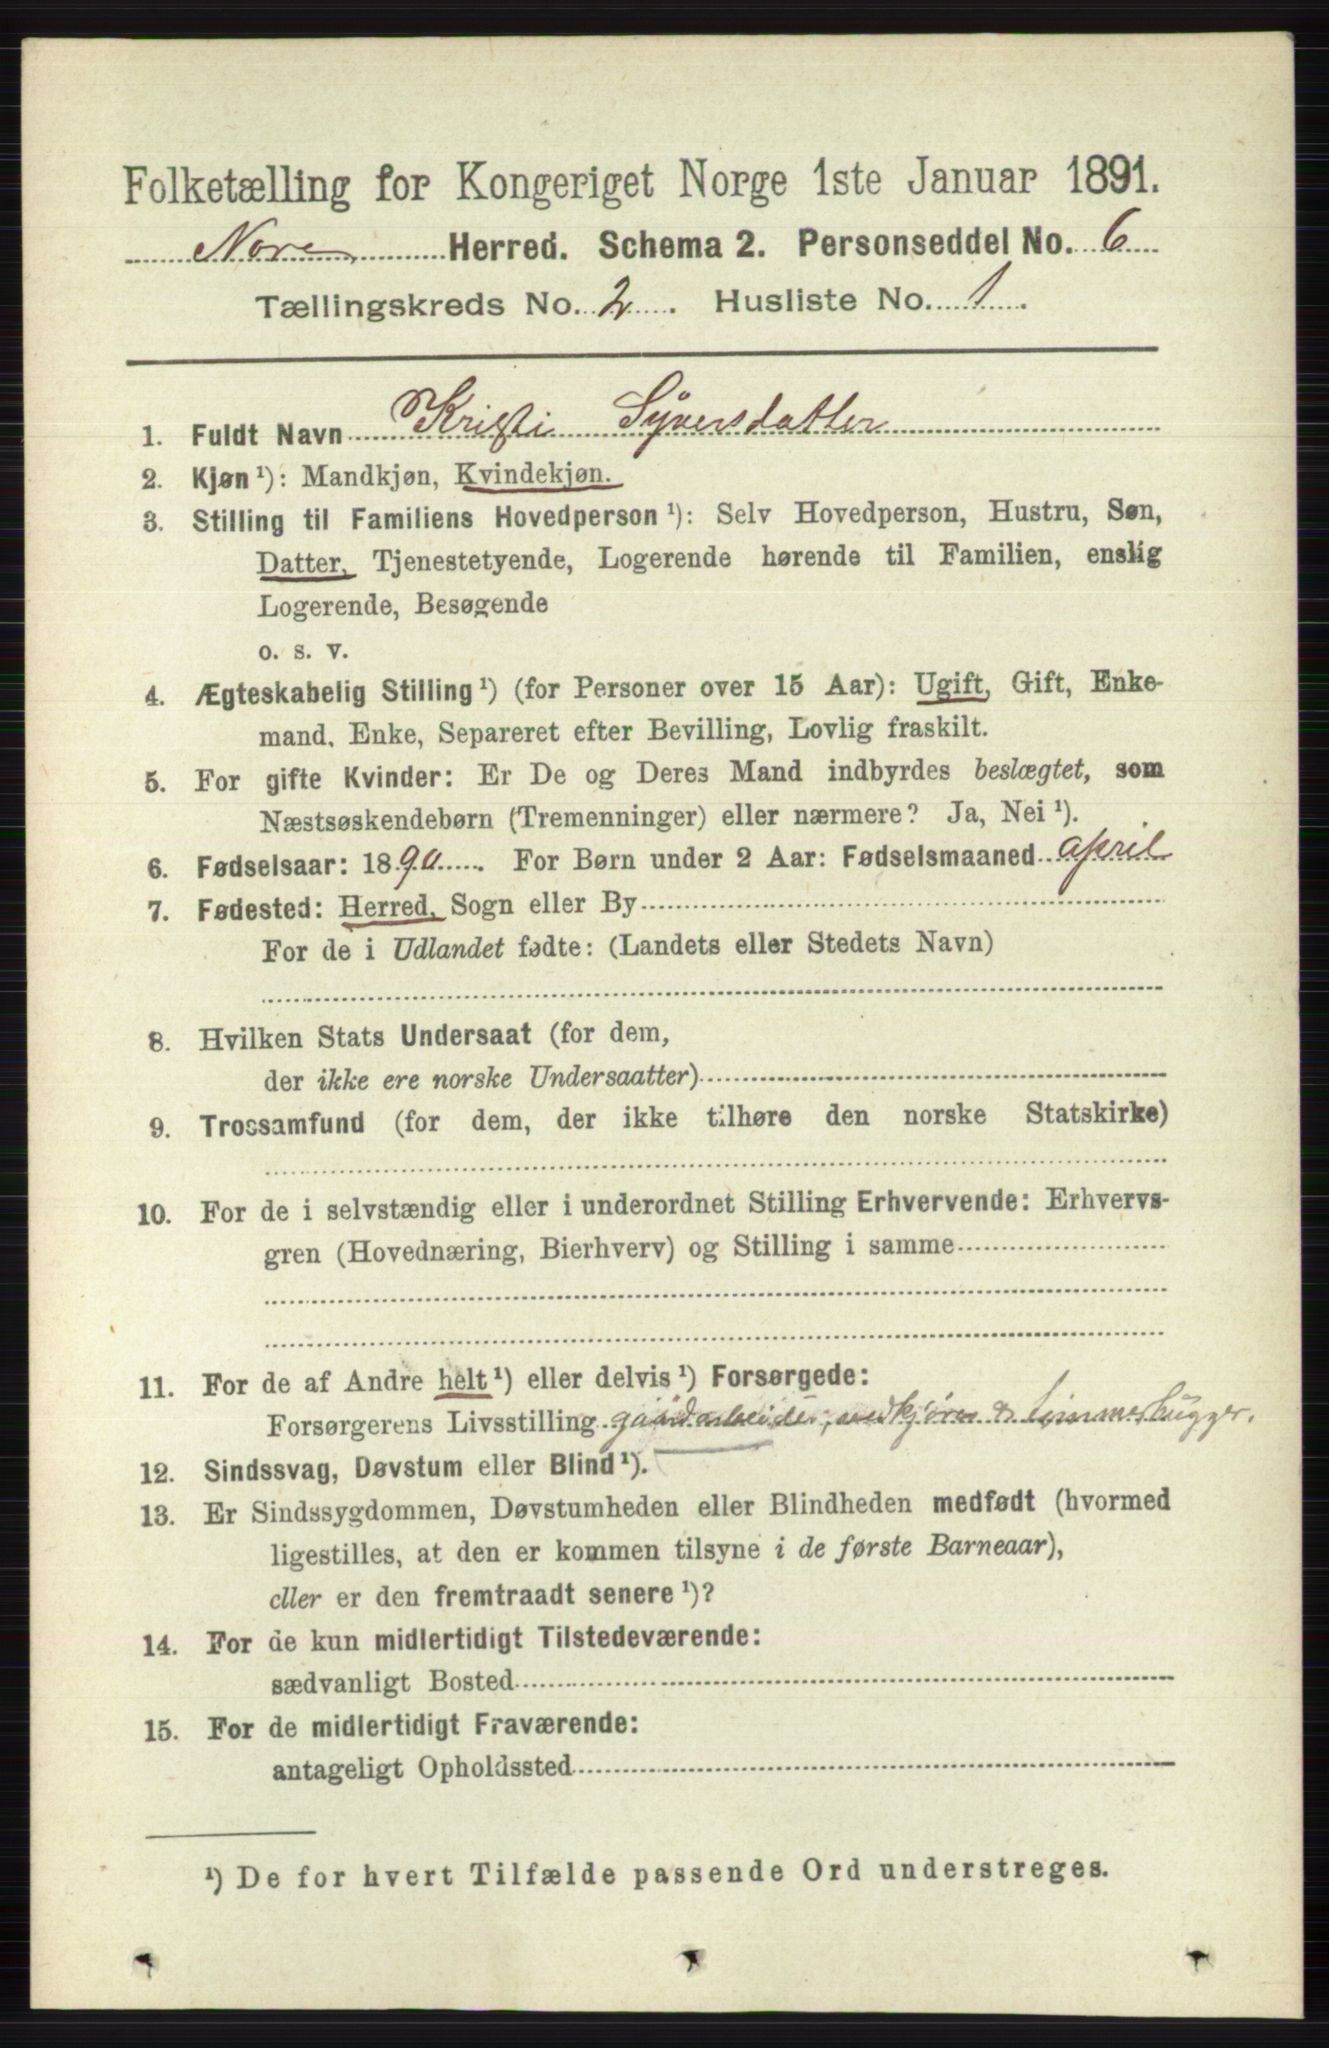 Folketælling for Kongeriget Norge 1ste Januar 1891.
Nore Herred. Schema 2. Personseddel No. 6
Tællingskreds No. 2. Husliste No. 1.
1. Fuldt Navn Kristi Syversdatter
2. Kjøn ¹): Mandkjøn, Kvindekjøn.
3. Stilling til Familiens Hovedperson ¹): Selv Hovedperson, Hustru, Søn,
Datter, Tjenestetyende, Logerende hørende til Familien, enslig
Logerende, Besøgende
o. s. v.
4. Ægteskabelig Stilling ¹) (for Personer over 15 Aar): Ugift, Gift, Enke-
mand, Enke, Separeret efter Bevilling, Lovlig fraskilt.
5. For gifte Kvinder: Er De og Deres Mand indbyrdes beslægtet, som
Næstsøskendebørn (Tremenninger) eller nærmere? Ja, Nei ¹).
6. Fødselsaar: 1890. For Børn under 2 Aar: Fødselsmaaned april
7. Fødested: Herred, Sogn eller By
For de i Udlandet fødte: (Landets eller Stedets Navn)
8. Hvilken Stats Undersaat (for dem,
der ikke ere norske Undersaatter)
9. Trossamfund (for dem, der ikke tilhøre den norske Statskirke)
10. For de i selvstændig eller i underordnet Stilling Erhvervende: Erhvervs-
gren (Hovednæring, Bierhverv) og Stilling i samme
11. For de af Andre helt ¹) eller delvis ¹) Forsørgede:
Forsørgerens Livsstilling gaardarbeider, vedkjører & tømmerhugger.
12. Sindssvag, Døvstum eller Blind ¹).
13. Er Sindssygdommen, Døvstumheden eller Blindheden medfødt (hvormed
ligestilles, at den er kommen tilsyne i de første Barneaar),
eller er den fremtraadt senere ¹)?
14. For de kun midlertidigt Tilstedeværende:
sædvanligt Bosted
15. For de midlertidigt Fraværende:
antageligt Opholdssted
¹) De for hvert Tilfælde passende Ord understreges.